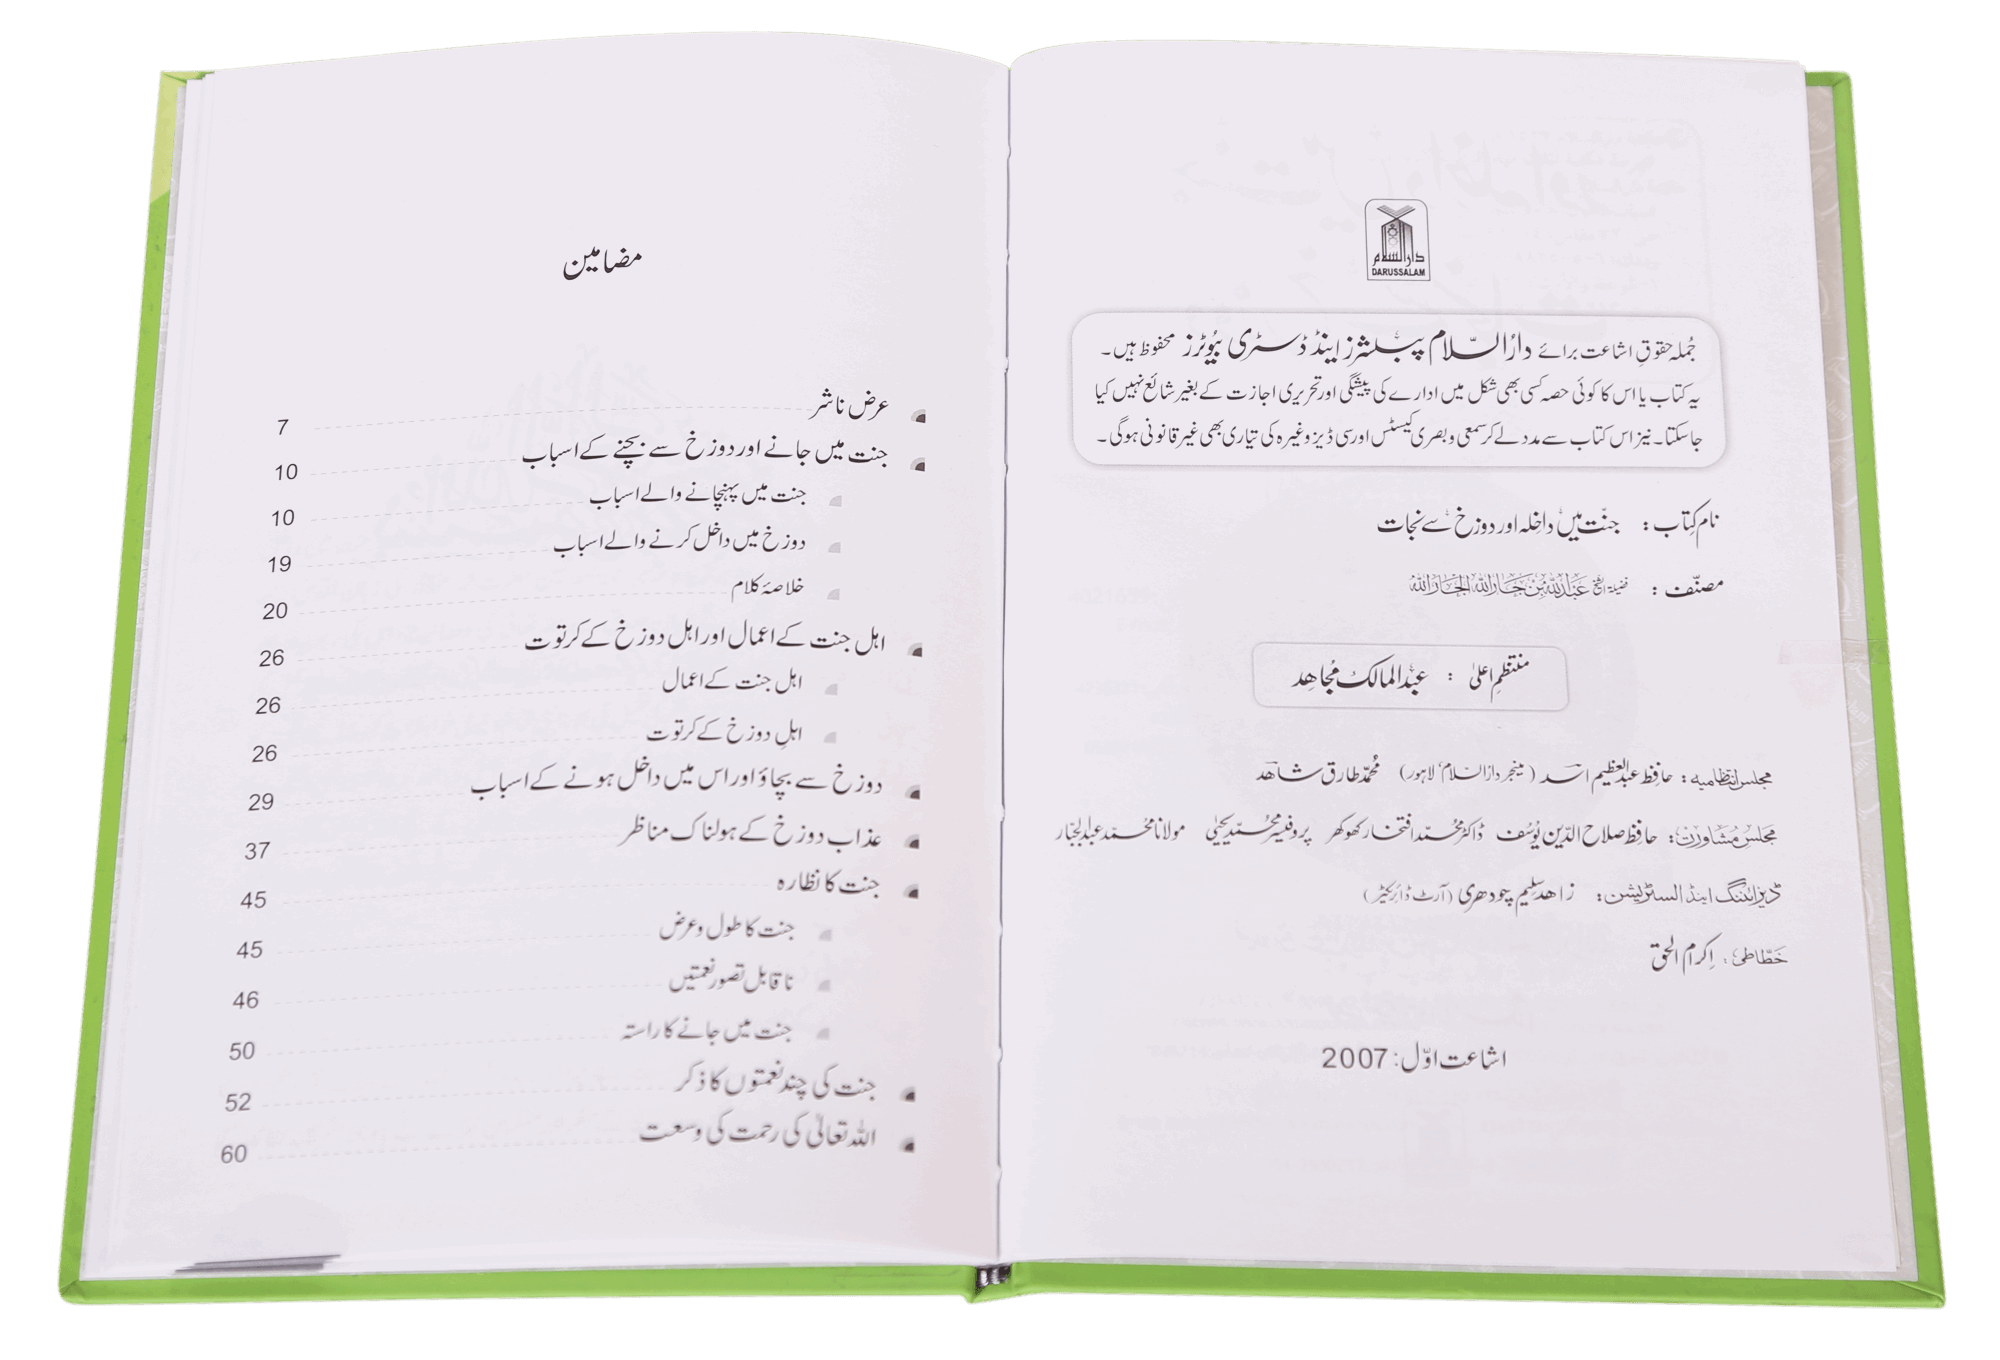 دارالسلام
DARUSSALAM
جُملہ حقوقِ اشاعت برائے دارُالسّلام پبلشرز اینڈ ڈسٹری بیُوٹرز محفوظ ہیں۔
یہ کتاب یا اس کا کوئی حصہ کسی بھی شکل میں ادارے کی پیشگی اور تحریری اجازت کے بغیر شائع نہیں کیا
جا سکتا۔ نیز اس کتاب سے مدد لے کر سمعی و بصری کیسٹس اور سی ڈیز وغیرہ کی تیاری بھی غیر قانونی ہوگی۔
نام کِتاب : جنّت میں داخِلہ اور دوزخ سے نجات
مصنّف : فضیلۃ الشیخ عبداللہ بن جاراللہ الجاراللہ
منتظمِ اعلیٰ : عبدُالمالک مُجاھِد
مجلس انتظامیہ : حافِظ عبدالعظیم اسد (مینجر دارُالسلام، لاہور) مُحمّد طارق شاھد
مجلس مُشاورت : حافِظ صلاح الدّین یُوسُف ڈاکٹر مُحمّد افتخار کھوکھر پروفیسر مُحمّد یحییٰ مولانا مُحمّد عبدالجبّار
ڈیزائننگ اینڈ السٹریشن : زاھد سلِیم چودھری (آرٹ ڈائریکٹر)
خطّاطی : اِکرامُ الحق
اشاعت اوّل: 2007
مضامین
عرض ناشر 7
جنت میں جانے اور دوزخ سے بچنے کے اسباب 10
جنت میں پہنچانے والے اسباب 10
دوزخ میں داخل کرنے والے اسباب 19
خلاصۂ کلام 20
اہل جنت کے اعمال اور اہل دوزخ کے کرتوت 26
اہل جنت کے اعمال 26
اہلِ دوزخ کے کرتوت 26
دوزخ سے بچاؤ اور اس میں داخل ہونے کے اسباب 29
عذاب دوزخ کے ہولناک مناظر 37
جنت کا نظارہ 45
جنت کا طول وعرض 45
ناقابل تصور نعمتیں 46
جنت میں جانے کا راستہ 50
جنت کی چند نعمتوں کا ذکر 52
اللہ تعالیٰ کی رحمت کی وسعت 60